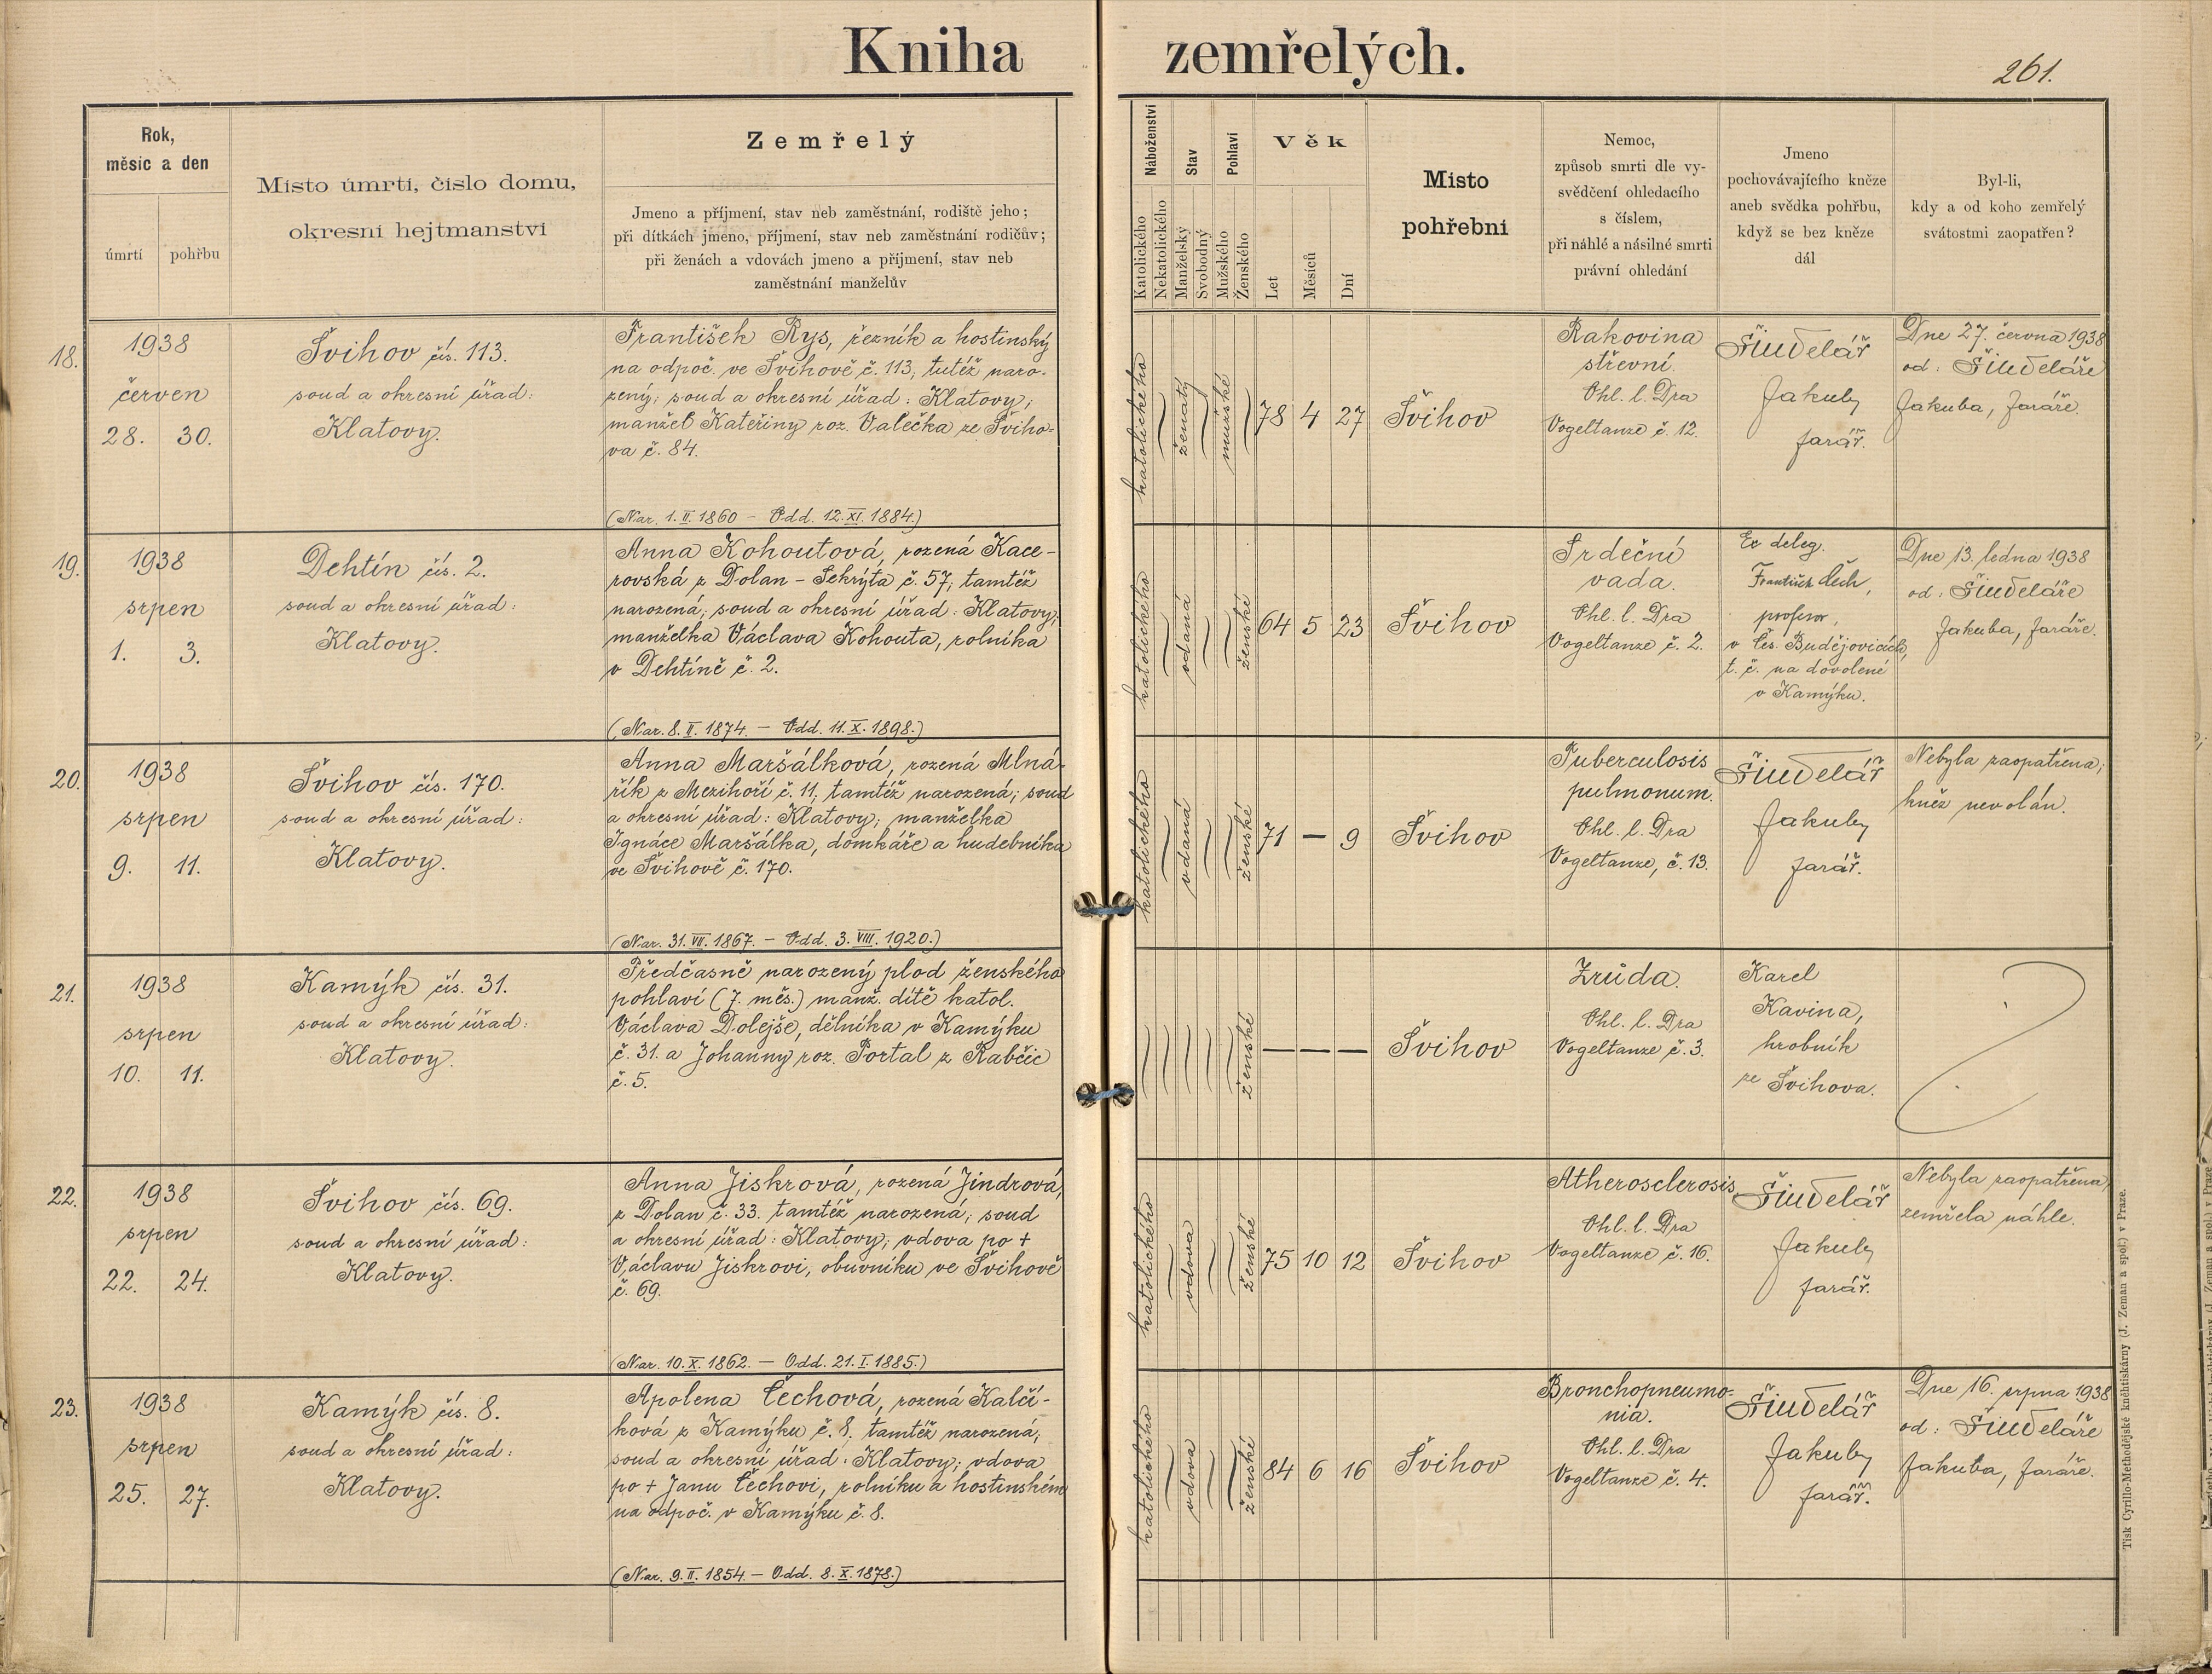 Kniha zemřelých.
261.
Rok,
měsíc a den
úmrtí
pohřbu
Místo úmrtí, číslo domu,
okresní hejtmanství
Zemřelý
Jmeno a příjmení, stav neb zaměstnání, rodiště jeho;
při dítkách jmeno, příjmení, stav neb zaměstnání rodičův;
při ženách a vdovách jmeno a příjmení, stav neb
zaměstnání manželův
Náboženství
Katolického
Nekatolického
Stav
Manželský
Svobodný
Pohlaví
Mužského
Ženského
Věk
Let
Měsíců
Dní
Místo
pohřební
Nemoc,
způsob smrti dle vy-
svědčení ohledacího
s číslem,
při náhlé a násilné smrti
právní ohledání
Jmeno
pochovávajícího kněze
aneb svědka pohřbu,
když se bez kněze
dál
Byl-li,
kdy a od koho zemřelý
svátostmi zaopatřen?
18.
1938
červen
28. 30.
Švihov čís. 113.
soud a okresní úřad:
Klatovy.
František Rys, řezník a hostinský
na odpoč. ve Švihově č. 113, tutéž naro-
zený; soud a okresní úřad: Klatovy;
manžel Kateřiny roz. Valečka ze Šviho-
va č. 84.
(Nar. 1. II. 1860 - Odd. 12. XI. 1884.)
katolického
ženatý
mužské
78 4 27
Švihov
Rakovina
střevní.
Ohl. l. Dra
Vogeltanze č. 12.
Šindelář
Jakub,
farář.
Dne 27. června 1938
od: Šindeláře
Jakuba, faráře.
19.
1938
srpen
1. 3.
Dehtín čís. 2.
soud a okresní úřad:
Klatovy.
Anna Kohoutová, rozená Kace-
rovská z Dolan - Sekrýta č. 57, tamtéž
narozená; soud a okresní úřad: Klatovy;
manželka Václava Kohouta, rolníka
v Dehtíně č. 2.
(Nar. 8. II. 1874. - Odd. 11. X. 1898.)
katolického
vdaná
ženské
64 5 23
Švihov
Srdeční
vada.
Ohl. l. Dra
Vogeltanze č. 2.
Ex deleg.
František Čech,
profesor,
v Čes. Budějovicích,
t. č. na dovolené
v Kamýku.
Dne 13. ledna 1938
od: Šindeláře
Jakuba, faráře.
20.
1938
srpen
9. 11.
Švihov čís. 170.
soud a okresní úřad:
Klatovy.
Anna Maršálková, rozená Mlná-
řík z Mezihoří č. 11, tamtéž narozená; soud
a okresní úřad: Klatovy; manželka
Ignáce Maršálka, domkáře a hudebníka
ve Švihově č. 170.
(Nar. 31. VII. 1867. - Odd. 3. VIII. 1920.)
katolického
vdaná
ženské
71 — 9
Švihov
Tuberculosis
pulmonum.
Ohl. l. Dra
Vogeltanze, č. 13.
Šindelář
Jakub,
farář.
Nebyla zaopatřena;
kněz nevolán.
21.
1938
srpen
10. 11.
Kamýk čís. 31.
soud a okresní úřad:
Klatovy.
Předčasně narozený plod ženského
pohlaví (7. měs.) manž. dítě katol.
Václava Dolejše, dělníka v Kamýku
č. 31. a Johanny roz. Portal z Rabčic
č. 5.
ženské
— — —
Švihov
Zrůda.
Ohl. l. Dra
Vogeltanze č. 3.
Karel
Kavina,
hrobník
ze Švihova.
22.
1938
srpen
22. 24.
Švihov čís. 69.
soud a okresní úřad:
Klatovy.
Anna Jiskrová, rozená Jindrová,
z Dolan č. 33. tamtéž narozená; soud
a okresní úřad: Klatovy; vdova po +
Václavu Jiskrovi, obuvníku ve Švihově
č. 69.
(Nar. 10. X. 1862. - Odd. 21. I. 1885.)
katolického
vdova
ženské
75 10 12
Švihov
Atherosclerosis.
Ohl. l. Dra
Vogeltanze č. 16.
Šindelář
Jakub,
farář.
Nebyla zaopatřena,
zemřela náhle.
23.
1938
srpen
25. 27.
Kamýk čís. 8.
soud a okresní úřad:
Klatovy.
Apolena Čechová, rozená Kalčí-
ková z Kamýku č. 8, tamtéž narozená;
soud a okresní úřad: Klatovy; vdova
po + Janu Čechovi, rolníku a hostinském
na odpoč. v Kamýku č. 8.
(Nar. 9. II. 1854. - Odd. 8. X. 1878.)
katolického
vdova
ženské
84 6 16
Švihov
Bronchopneumo-
nia.
Ohl. l. Dra
Vogeltanze č. 4.
Šindelář
Jakub,
farář.
Dne 16. srpna 1938
od: Šindeláře
Jakuba, faráře.
Tisk Cyrillo-Methodějské knihtiskárny (J. Zeman a spol.) v Praze.